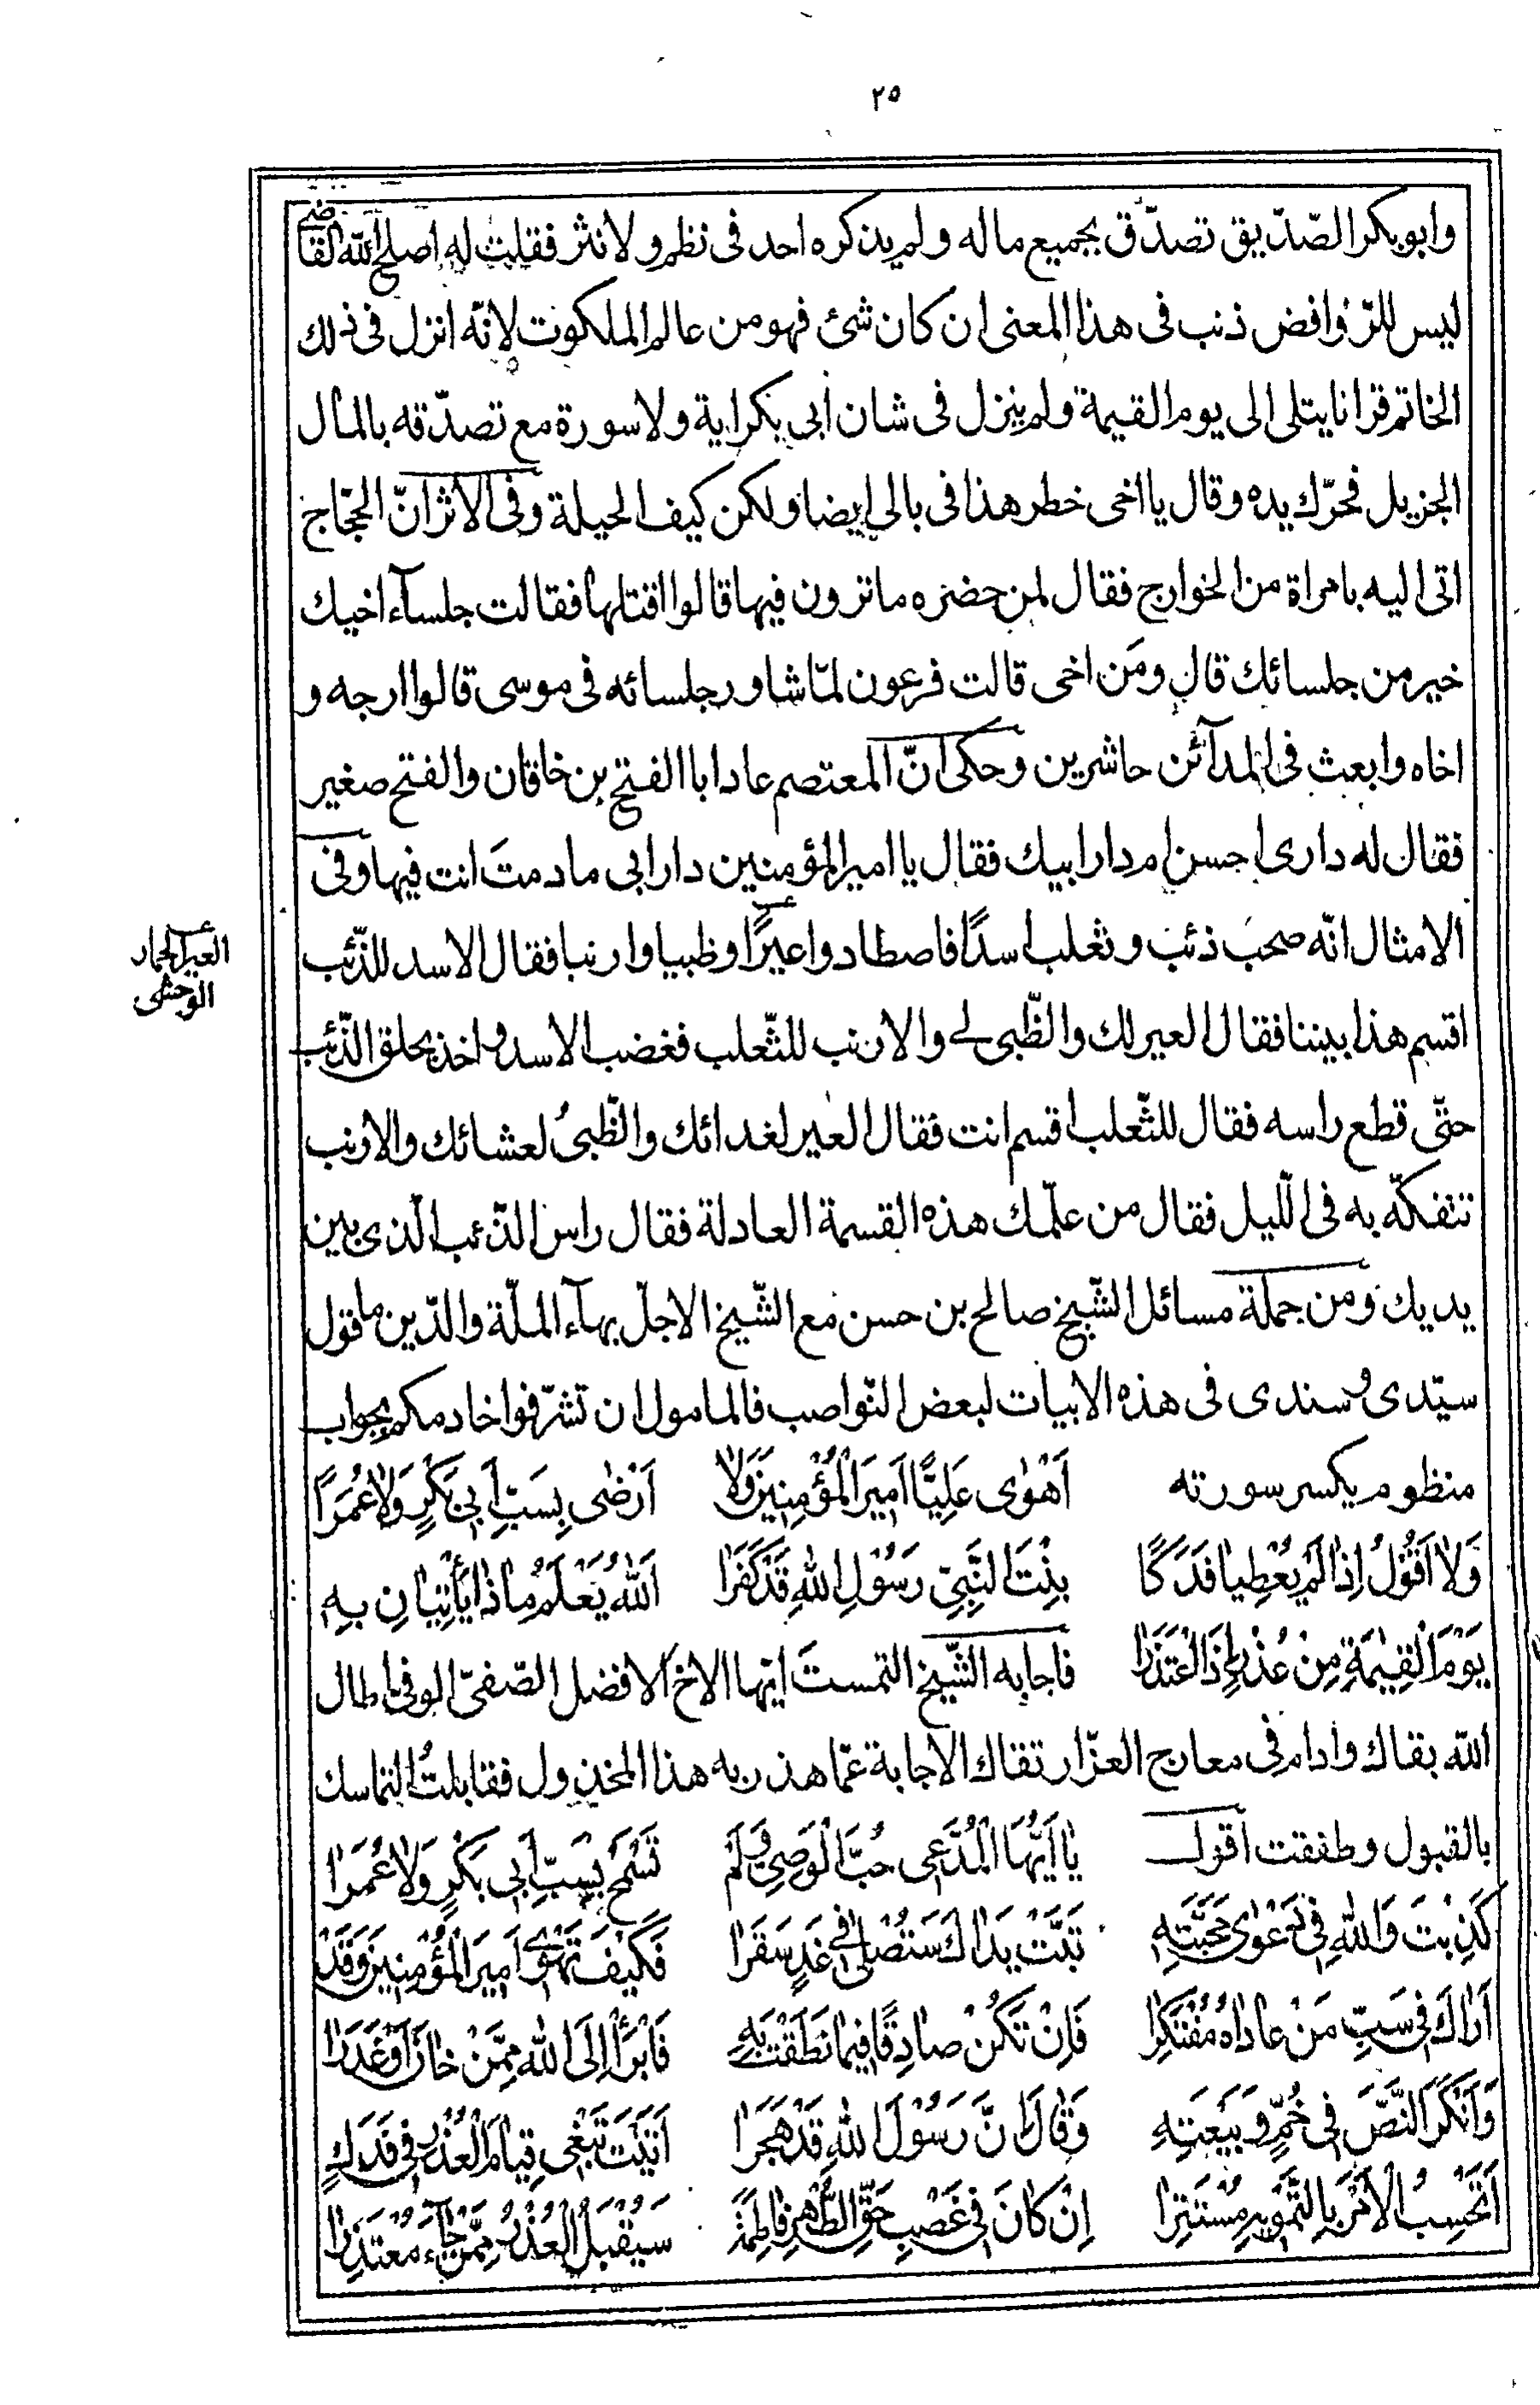 ٢٥
وابوبكر الصّدّيق تصدّق بجميع ماله ولم يذكره احد فى نظم ولا نثر فقلت له اصلح الله القاضى
ليس للرّوافض ذنب فى هذا المعنى ان كان شئ فهو من عالم الملكوت لانّه انزل فى ذلك
الخاتم قرانا يتلى الى يوم القيمة ولم ينزل فى شان ابى بكر اية ولا سورة مع تصدّقه بالمال
الجزيل فحرّك يده وقال يا اخى خطر هذا فى بالى ايضا ولكن كيف الحيلة وفى الاثر انّ الحجّاج
اتى اليه بامراة من الخوارج فقال لمن حضره ما ترون فيها قالوا اقتلها فقالت جلسآء اخيك
خير من جلسائك قال ومَن اخى قالت فرعون لمّا شاور جلسائه فى موسى قالوا ارجه و
اخاه وابعث فى المدآئن حاشرين وحكى انّ المعتصم عاد ابا الفتح بن خاقان والفتح صغير
فقال له دارى احسن ام دار ابيك فقال يا امير المؤمنين دار ابى ما دمتَ انت فيها وفى
الامثال انّه صحب ذئب وثعلب اسدًا فاصطادوا عيرًا وظبيا وارنبا فقال الاسد للذّئب
العير الحمار
الوحشى
اقسم هذا بيننا فقال العير لك والظّبى لى والارنب للثّعلب فغضب الاسد واخذ بحلق الذّئب
حتّى قطع راسه فقال للثّعلب اقسم انت فقال العير لغدائك والظّبىُ لعشائك والارنب
تتفكّه به فى الّليل فقال من علّمك هذه القسمة العادلة فقال راس الذّئب الّذى بين
يديك ومن جملة مسائل الشّيخ صالح بن حسن مع الشّيخ الاجلّ بهآء الملّة والدّين ما قول
سيّدى وسندى فى هذه الابيات لبعض النّواصب فالمامول ان تشرّفوا خادمكم بجواب
منظوم يكسر سورته اَهْوٰى عَلِيًّا اَمِيرَ الْمُؤْمِنِينَ وَلَا اَرْضٰى بِسَبِّ اَبِى بَكْرٍ وَلَا عُمَرًا
وَلَا اَقُوْلُ اِذَا لَمْ يُعْطِيا فَدَكًا بِنْتَ النَّبِيِّ رَسُوْلِ اللهِ قَدْ كَفَرَا اَللهُ يَعْلَمُ مَاذَا يَأْتِيَانِ بِهِ
يَوْمَ الْقِيٰمَةِ مِنْ عُذْرٍ اِذَا اعْتَذَرَا فاجابه الشّيخ التمستَ ايّها الاخ الافضل الصّفىّ الوفى اطال
الله بقاك وادام فى معارج العزّ ارتقاك الاجابة عمّا هذر به هذا المخذول فقابلتُ التماسك
بالقبول وطفقت اقول يَا اَيُّهَا الْمُدَّعِى حُبَّ الْوَصِىِّ وَلَمْ تَسْمَحْ بِسَبِّ اَبِى بَكْرٍ وَلَا عُمَرَا
كَذِبْتَ وَاللهِ فِى دَعْوٰى مَحَبَّتِهِ تَبَّتْ يَدَاكَ سَتُصْلٰى فِى غَدٍ سَقَرَا فَكَيْفَ تَهْوٰى اَمِيرَ الْمُؤْمِنِينَ وَقَدْ
اَرَاكَ فِى سَبِّ مَنْ عَادَاهُ مُفْتَكِرًا فَاِنْ تَكُنْ صَادِقًا فِيمَا نَطَقْتَ بِهِ فَابْرَأْ اِلَى اللهِ مِمَّنْ خَانَ اَوْ غَدَرَا
وَاَنْكَرَ النَّصَّ فِى خُمٍّ وَبَيْعَتِهِ وَقَالَ اِنَّ رَسُوْلَ اللهِ قَدْ هَجَرَا اَتَيْتَ تَبْغِى قِيَامَ الْعُذْرِ فِى فَدَكٍ
اَتَحْسِبُ الْاَمْرَ بِالتَّمْوِيهِ مُسْتَتِرًا اِنْ كَانَ فِى غَصْبِ حَقِّ الطُّهْرِ فَاطِمَةَ سَيُقْبَلُ الْعُذْرُ مِمَّنْ جَآءَ مُعْتَذِرَا